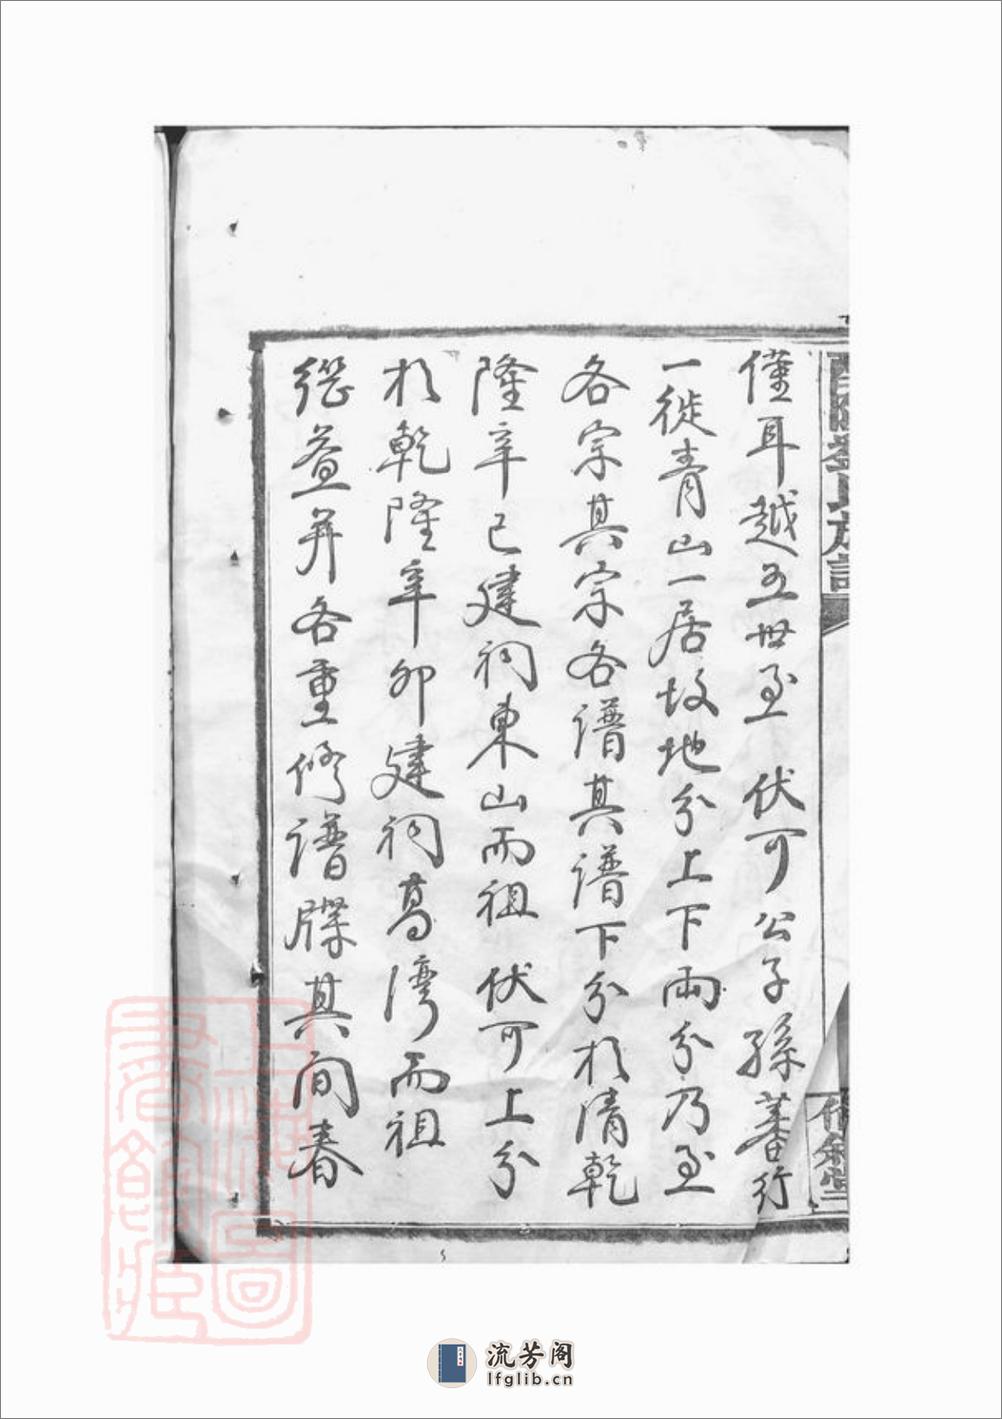 僅耳越五世至 伏可公子孫蕃衍
一徙青山一居坟地分上下兩分乃至
各宗其宗各譜其譜下分於清乾
隆辛巳建祠東山而祖 伏可上分
於乾隆辛卯建祠葛灣而祖
從益并各重修譜牒其间春
氏族譜
上海圖書館藏
流芳阁
lfglib.cn